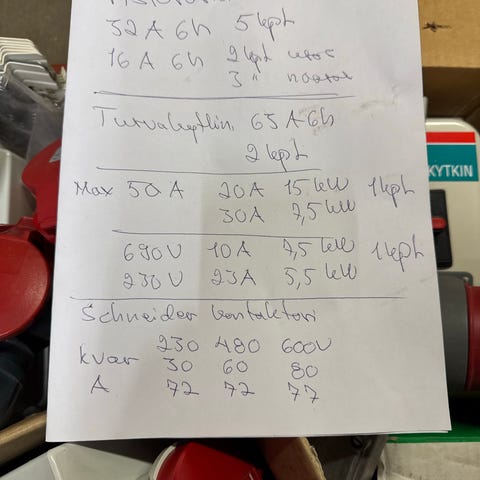 32A 6h 5kpl
16A 6h 2kpl uros
3 " naaras
Turvakytkin 63A 6h
2kpl
Max 50A 20A 15kW 1kpl
30A 7,5kW
690V 10A 7,5kW 1kpl
230V 23A 5,5kW
Schneider kontaktori
230 480 600V
kvar 30 60 80
A 72 72 77
KYTKIN